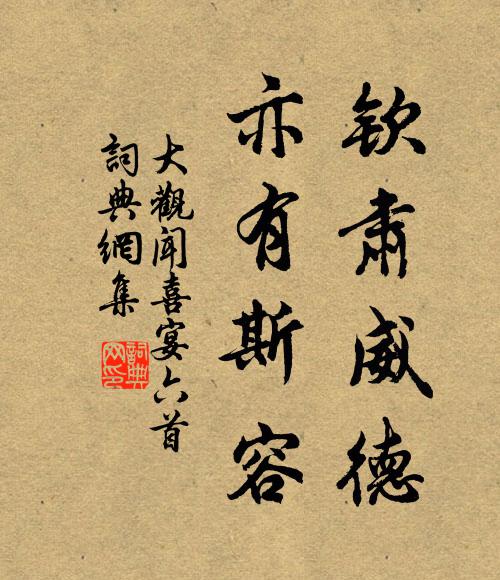 欽肅威德
亦有斯容
大觀聞喜宴六首
詞典網集
詞典網印